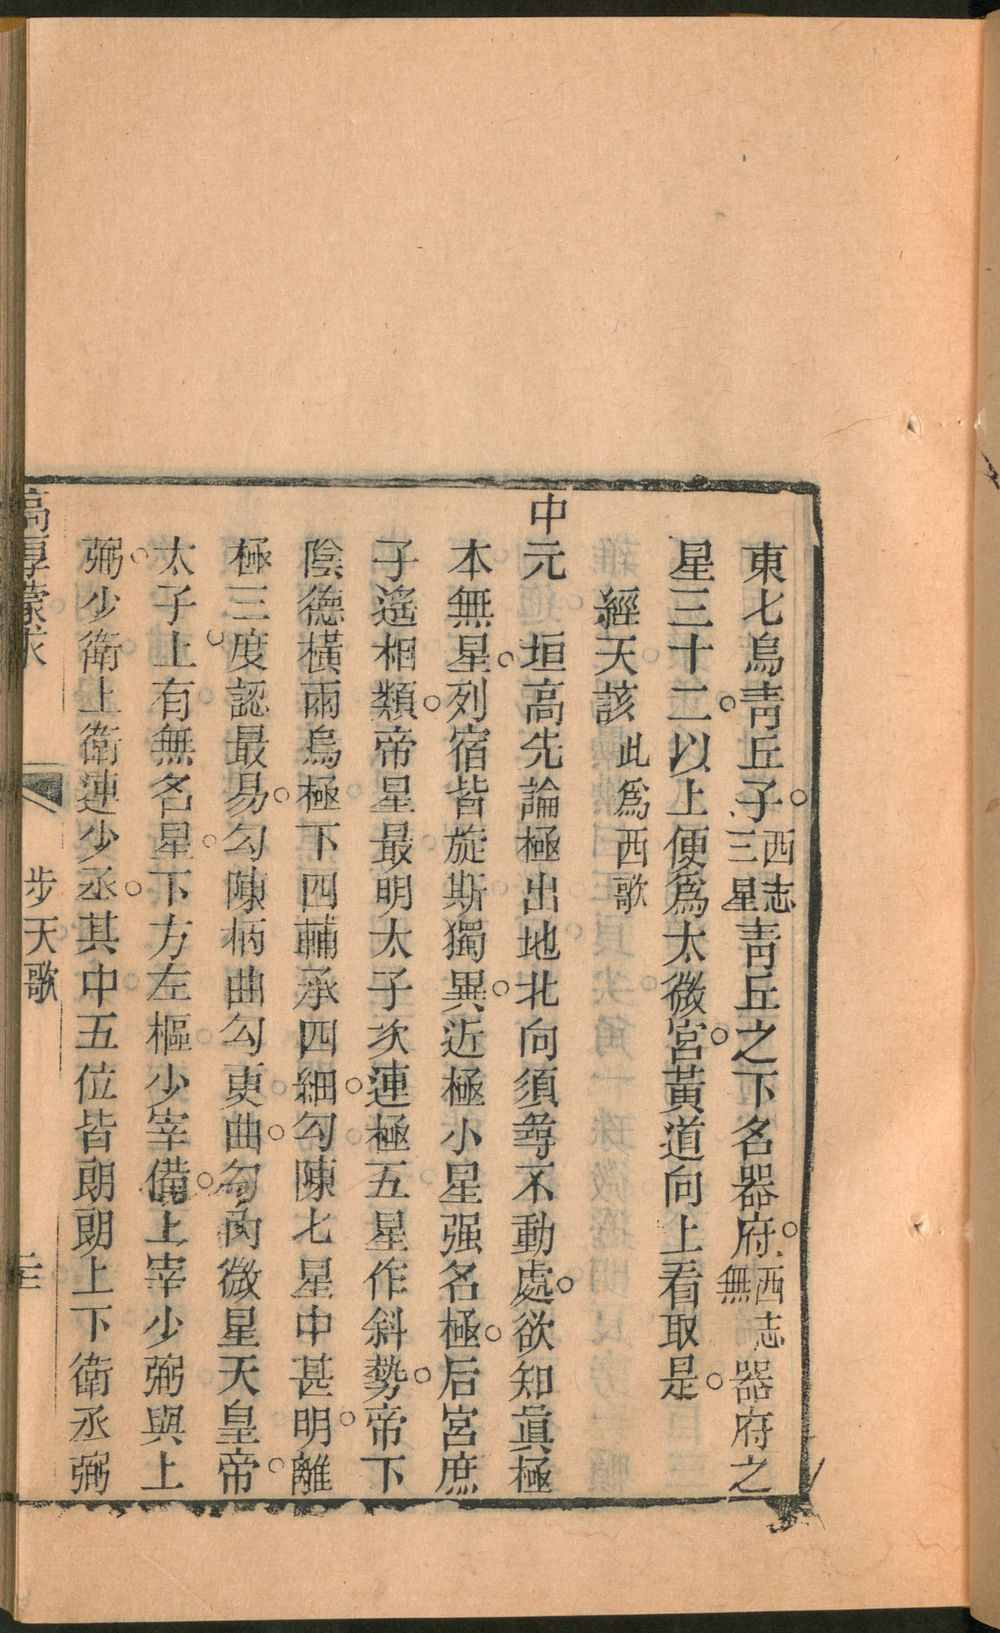 東七烏青丘子。西志三星青丘之下名器府。西志無器府之
星三十二。以上便爲太微宮。黃道向上看取是。
經天該此爲西歌
中元垣高先論極出地北向須尋不動處。欲知眞極
本無星。列宿皆旋斯獨異。近極小星强名極。后宮庶
子遙相類。帝星最明太子次連極五星作斜勢。帝下
陰德橫兩烏極下四輔承四細。勾陳七星中甚明。離
極三度認最易。勾陳柄曲勾更曲。勾內微星天皇帝。
太子上。有無名星。下方左樞少宰備。上宰少弼與上
弼。少衛上衛連少丞。其中五位皆朗朗上下衛丞弼
高厚蒙求
步天歌